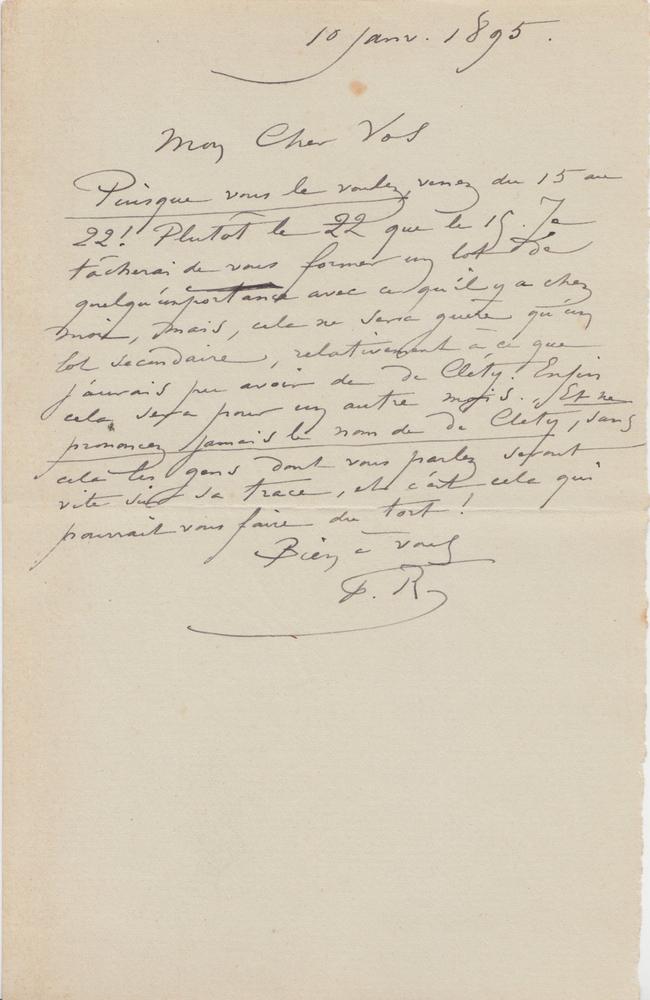 10 Janv. 1895.
Mon Cher Vos
Puisque vous le voulez, venez du 15 au
22! Plutôt le 22 que le 15. Je
tâcherai de vous former un lot de
quelqu'importance avec ce qu'il y a chez
moi, mais, cela ne sera guère qu'un
lot secondaire, relativement à ce que
j'aurais pu avoir de de Clety. Enfin
cela sera pour un autre mois. Et ne
prononcez jamais le nom de de Clety, sans
cela les gens dont vous parlez seront
vite sur sa trace, et c'est cela qui
pourrait vous faire du tort!
Bien à vous
F. R.